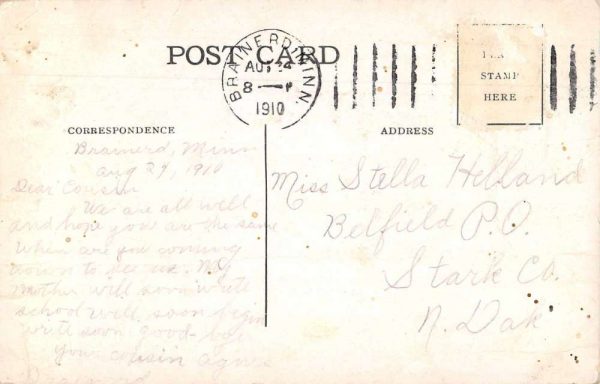 POST CARD
BRAINERD, MINN.
8 — P
1910
PLACE
STAMP
HERE
CORRESPONDENCE
ADDRESS
Brainerd, Minn
Aug 29, 1910
Dear Cousin
We are all well
and hope you are the same
When are you coming
down to see us. My
mother will soon write
school will soon begin
write soon good-bye
your cousin Agnes
Miss Stella Helland
Belfield P.O.
Stark Co.
N. Dak